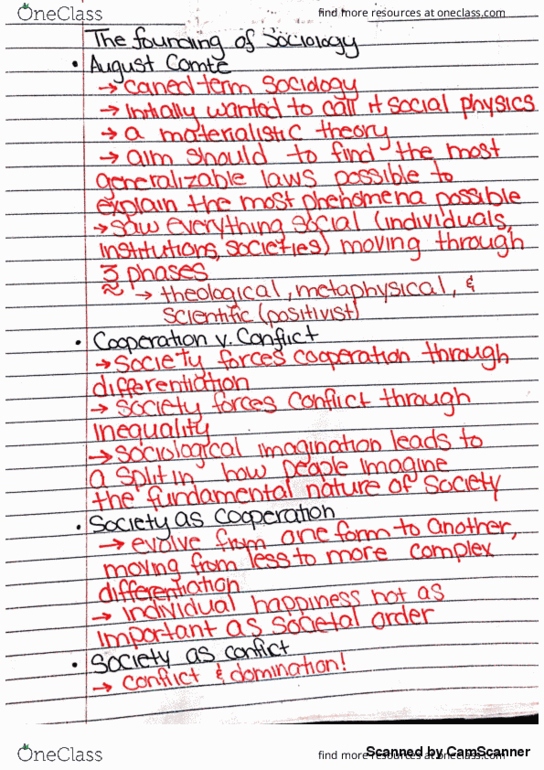 OneClass
find more resources at oneclass.com
The founding of Sociology
• August Comte
→ coined term Sociology
→ Initially wanted to call it social physics
→ a materialistic theory
→ aim should to find the most
generalizable laws possible to
explain the most phenomena possible
→ saw everything social (individuals,
institutions, societies) moving through
3 phases
→ theological, metaphysical, &
scientific (positivist)
• Cooperation v. Conflict
→ Society forces cooperation through
differentiation
→ society forces conflict through
inequality
→ sociological imagination leads to
a split in how people imagine
the fundamental nature of society
• Society as cooperation
→ evolve from one form to another,
moving from less to more complex
differentiation
→ individual happiness not as
important as societal order
• Society as conflict
→ conflict & domination!
OneClass
find more resources at oneclass.com
Scanned by CamScanner